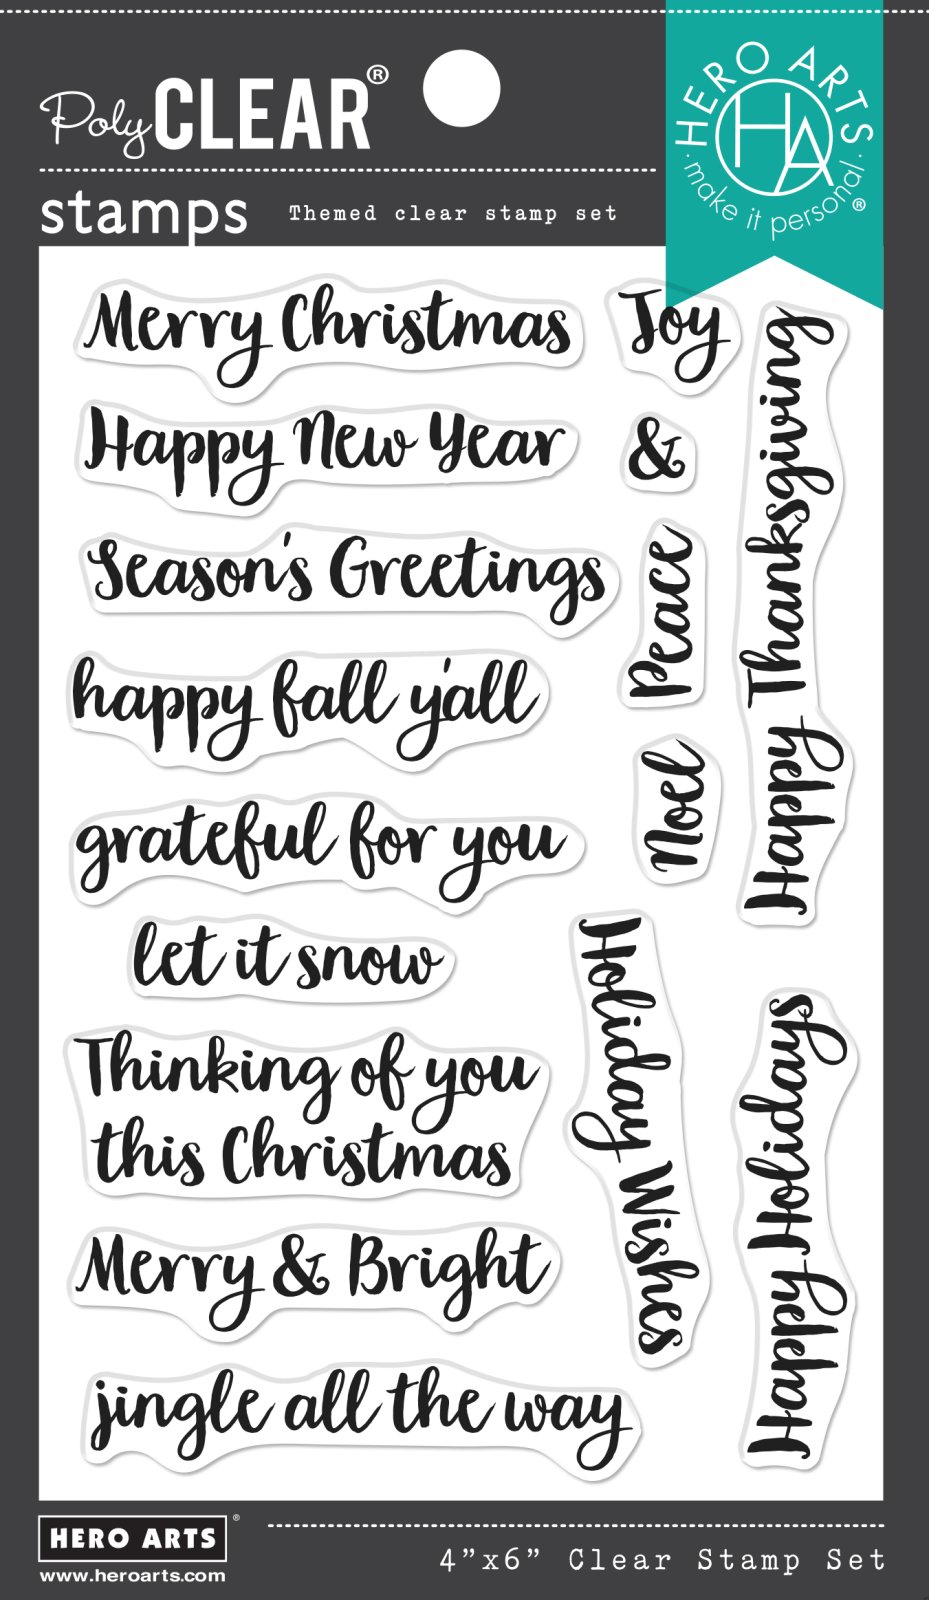 Poly CLEAR®
stamps
Themed clear stamp set
HERO ARTS
HA
· make it personal ·®
Merry Christmas
Joy
Happy New Year
&
Season's Greetings
Peace
Happy Thanksgiving
happy fall y'all
Noel
grateful for you
let it snow
Holiday Wishes
Happy Holidays
Thinking of you
this Christmas
Merry & Bright
jingle all the way
HERO ARTS®
www.heroarts.com
4”x6” Clear Stamp Set